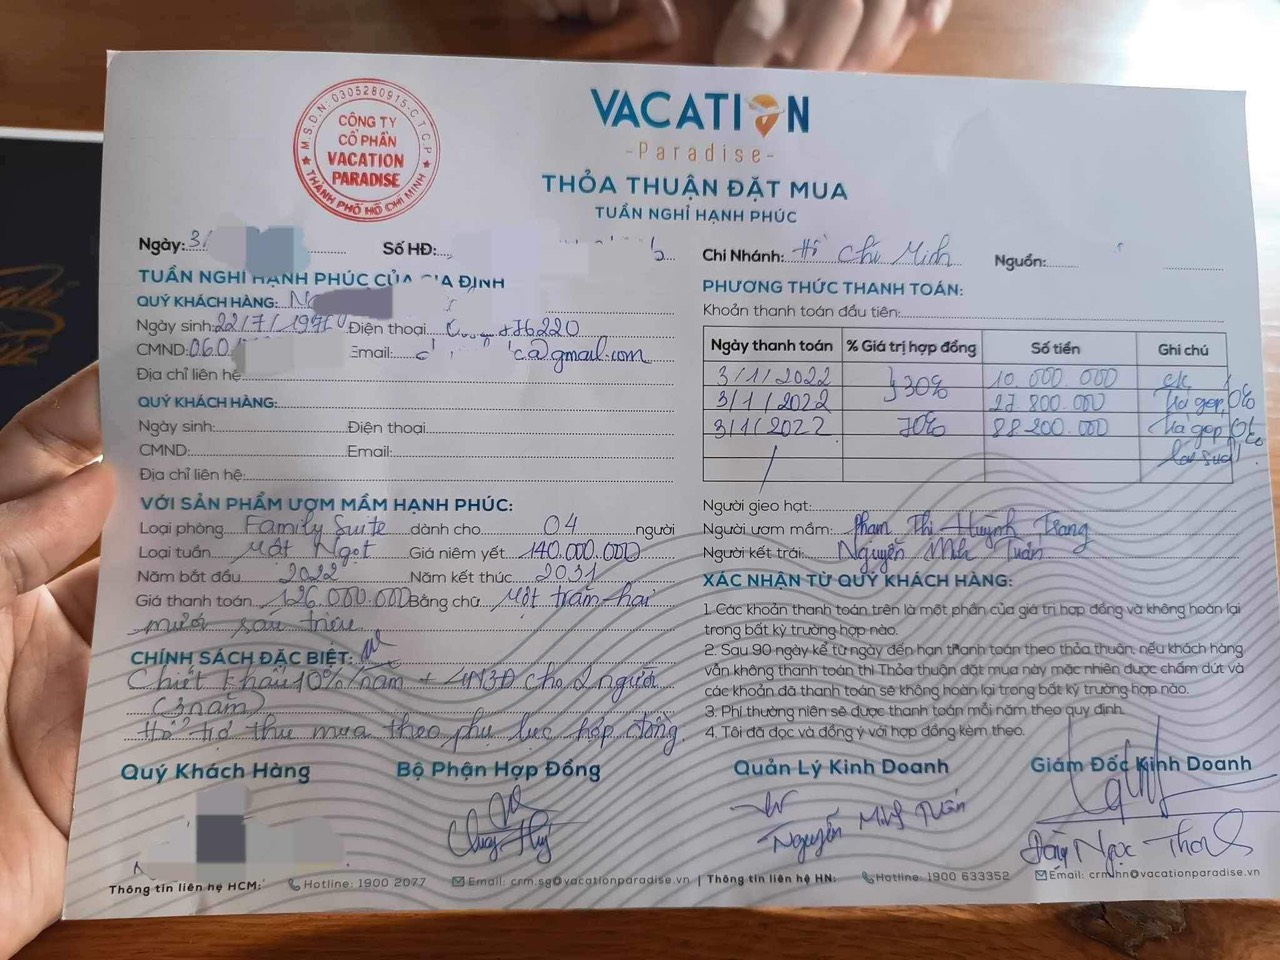 M.S.D.N: 0305280915-C.T.C.P
CÔNG TY
CỔ PHẦN
VACATION
PARADISE
THÀNH PHỐ HỒ CHÍ MINH
VACATION
-Paradise-
THỎA THUẬN ĐẶT MUA
TUẦN NGHỈ HẠNH PHÚC
Ngày: 3/ Số HĐ:
Chi Nhánh: Hồ Chí Minh Nguồn:
TUẦN NGHỈ HẠNH PHÚC CỦA GIA ĐỊNH
QUÝ KHÁCH HÀNG:
Ngày sinh: 22/7/197 Điện thoại 76220
CMND: 060 Email: @gmail.com
Địa chỉ liên hệ
QUÝ KHÁCH HÀNG:
Ngày sinh: Điện thoại
CMND: Email:
Địa chỉ liên hệ:
VỚI SẢN PHẨM ƯƠM MẦM HẠNH PHÚC:
Loại phòng Family Suite dành cho 04 người
Loại tuần Mật Ngọt Giá niêm yết 140.000.000
Năm bắt đầu 2022 Năm kết thúc 2031
Giá thanh toán 126.000.000 Bằng chữ Một trăm hai
mươi sáu triệu
CHÍNH SÁCH ĐẶC BIỆT:
Chiết khấu 10%/năm + 4N3Đ cho 2 người
(3 năm)
Hỗ trợ thu mua theo phụ lục hợp đồng.
PHƯƠNG THỨC THANH TOÁN:
Khoản thanh toán đầu tiên:
Ngày thanh toán % Giá trị hợp đồng Số tiền Ghi chú
3/1/2022 } 30% 10.000.000 ck
3/1/2022 27.800.000 Trả góp 0%
3/1/2022 70% 88.200.000 Trả góp 0%
lãi suất
Người gieo hạt:
Người ươm mầm: Phạm Thị Huỳnh Trang
Người kết trái: Nguyễn Minh Tuấn
XÁC NHẬN TỪ QUÝ KHÁCH HÀNG:
1. Các khoản thanh toán trên là một phần của giá trị hợp đồng và không hoàn lại
trong bất kỳ trường hợp nào.
2. Sau 90 ngày kể từ ngày đến hạn thanh toán theo thỏa thuận, nếu khách hàng
vẫn không thanh toán thì Thỏa thuận đặt mua này mặc nhiên được chấm dứt và
các khoản đã thanh toán sẽ không hoàn lại trong bất kỳ trường hợp nào.
3. Phí thường niên sẽ được thanh toán mỗi năm theo quy định.
4. Tôi đã đọc và đồng ý với hợp đồng kèm theo.
Quý Khách Hàng Bộ Phận Hợp Đồng Quản Lý Kinh Doanh Giám Đốc Kinh Doanh
Nguyễn Minh Tuấn
Đặng Ngọc
Thông tin liên hệ HCM: Hotline: 1900 2077 Email: crm.sg@vacationparadise.vn | Thông tin liên hệ HN: Hotline: 1900 633352 Email: crm.hn@vacationparadise.vn